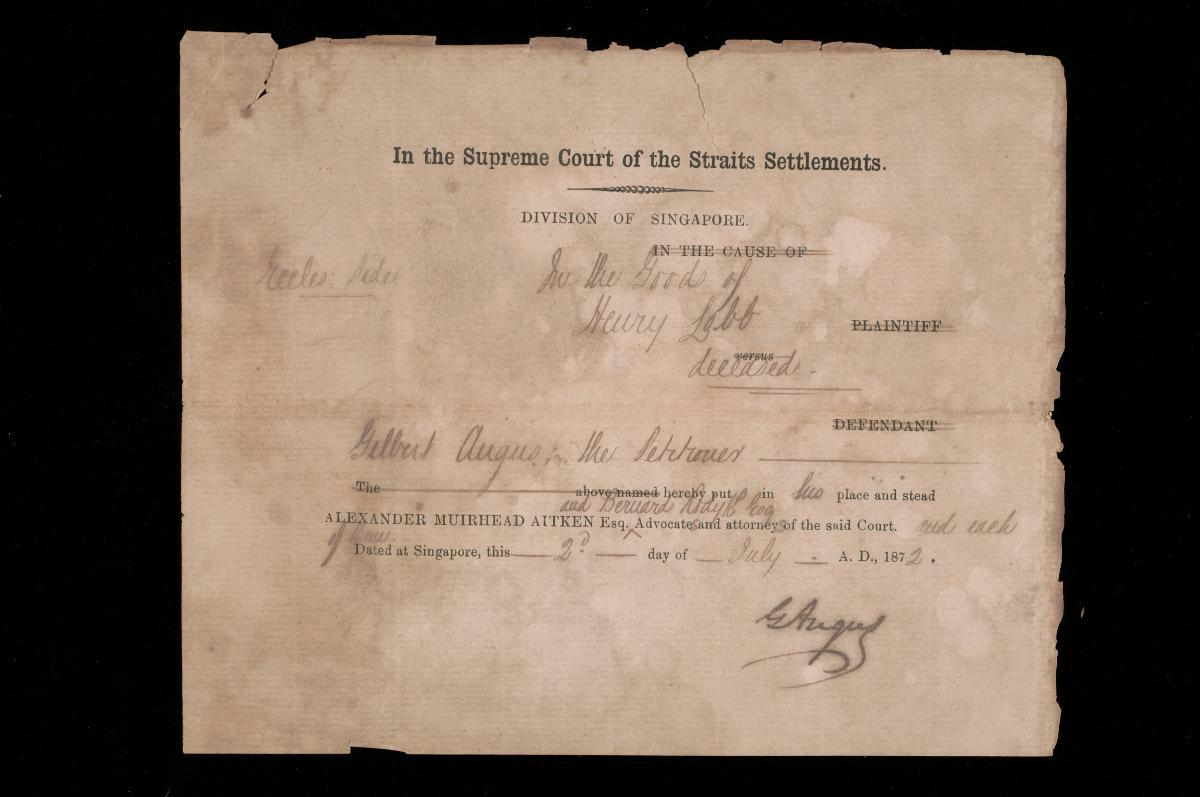 In the Supreme Court of the Straits Settlements.
DIVISION OF SINGAPORE.
IN THE CAUSE OF
Eccles: Side
In the Goods of
Henry Lobb
PLAINTIFF
versus
deceased.
DEFENDANT
Gilbert Angus, the Petitioner
The above named hereby put in his place and stead
and Bernard Rodyk Esq
ALEXANDER MUIRHEAD AITKEN Esq. Advocates and attorneys of the said Court. and each
of them.
Dated at Singapore, this 2d day of July A. D., 1872.
G Angus